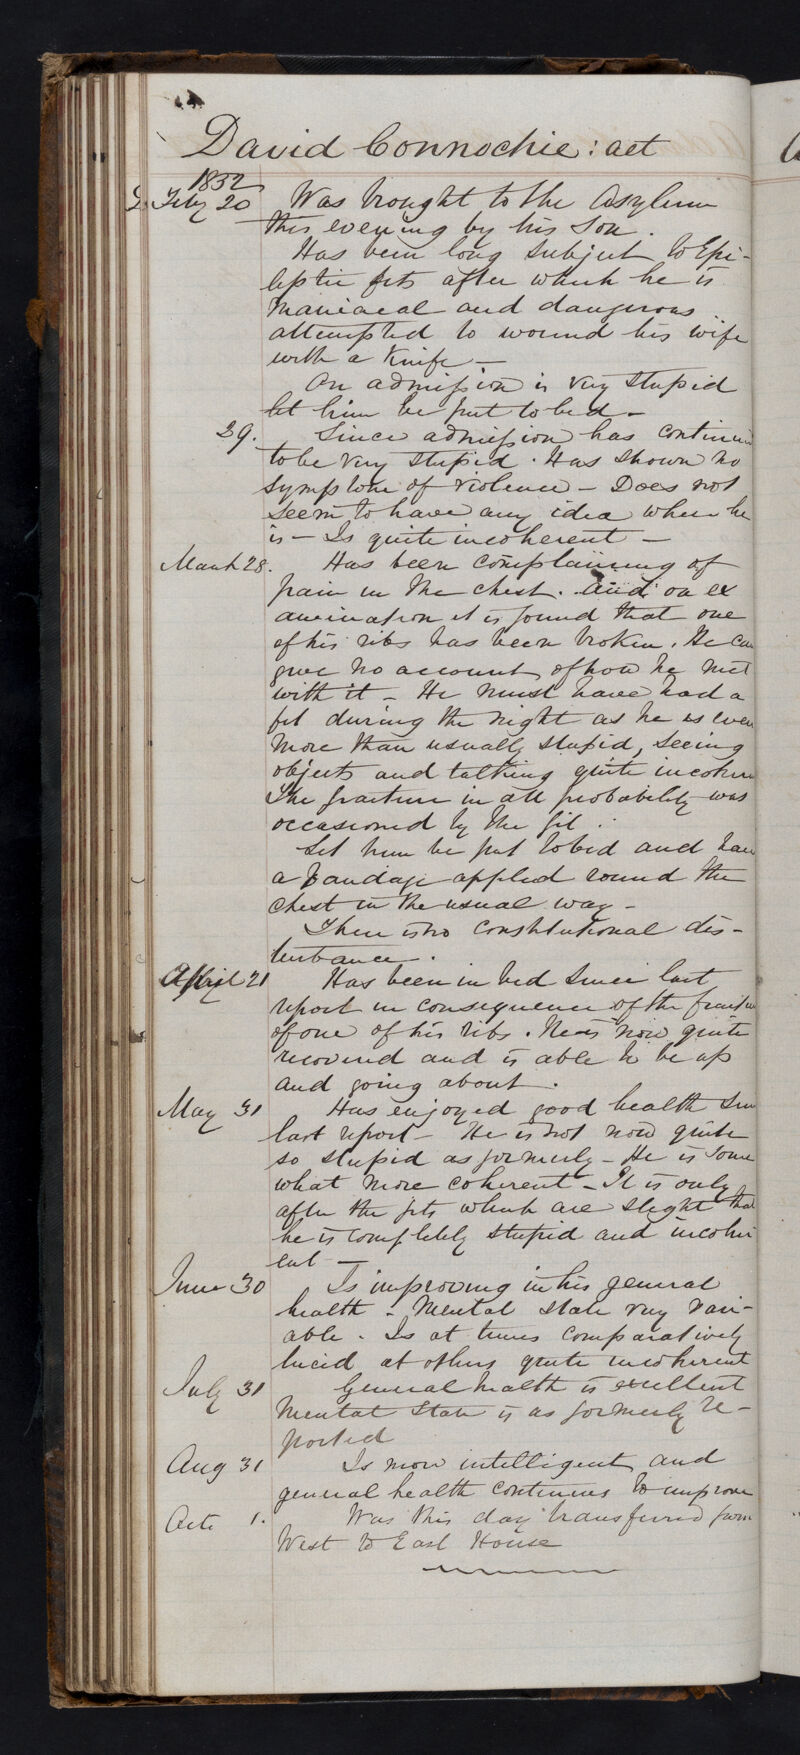 David Connochie : aet
1852
Feby 20 Was brought to the Asylum
this evening by his Son.
Has been long subject to Epi-
leptic fits after which he is
Maniacal and dangerous
attempted to wound his wife
with a Knife —
On admission is very stupid
let him be put to bed —
29. Since admission has continu
to be very stupid. Has shown no
symptom of violence — Does not
seem to have any idea where he
is — Is quite incoherent —
March 28. Has been complaining of
pain in the chest. And on ex
amination it is found that one
of his ribs has been broken. He can
give no account of how he met
with it — He must have had a
fit during the night as he is even
more than usually stupid, seeing
objects and talking quite incoher
The fracture in all probability was
occasioned by the fit.
Let him be put to bed and have
a bandage applied round the
chest in the usual way —
There is no constitutional dis-
turbance.
April 21 Has been in bed since last
report in consequence of the fractu
of one of his ribs. He is now quite
recovered and is able to be up
and going about.
May 31 Has enjoyed good health sin
last report — He is not now quite
so stupid as formerly — He is some
what more coherent — It is only
after the fits which are slight that
he is completely stupid and incoher
ent —
June 30 Is improving in his general
health — Mental state very vari-
able. Is at times comparatively
lucid at others quite incoherent
July 31 General health is excellent
Mental State is as formerly re-
ported
Aug 31 Is more intelligent and
general health continues to improve
Octr 1. Was this day transferred from
West to East House